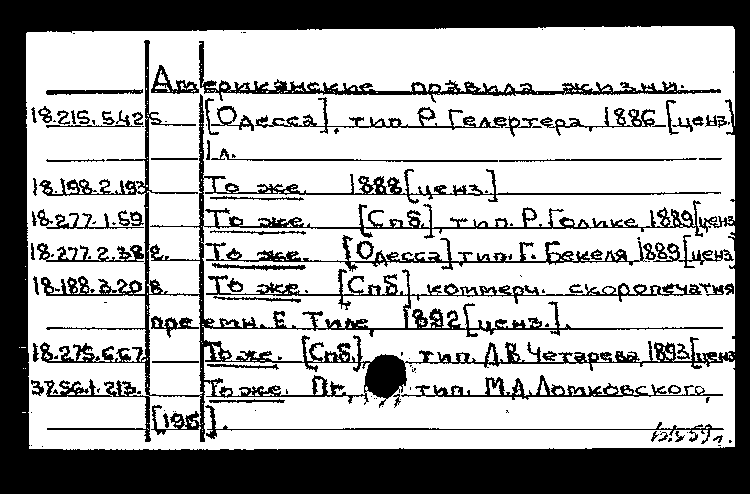 Американские правила жизни.
18.215.5.425 [Одесса], тип. Р. Гелертера, 1886 [ценз]
1 л.
18.198.2.193 То же. 1888 [ценз.]
18.277.1.59 То же. [Спб.], тип. Р. Голике, 1889 [ценз
18.277.2.382. То же. [Одесса], тип. Г. Бекеля, 1889 [ценз
18.188.3.20 в. То же. [Спб.], коммерч. скоропечатня
преемн. Е. Тиле, 1892 [ценз.].
18.275.6.67. То же. [Спб.], тип. Д.В. Четарева, 1893 [ценз
37.56.1.213. То же. Пг., тип. М.Д. Ломковского,
[195].